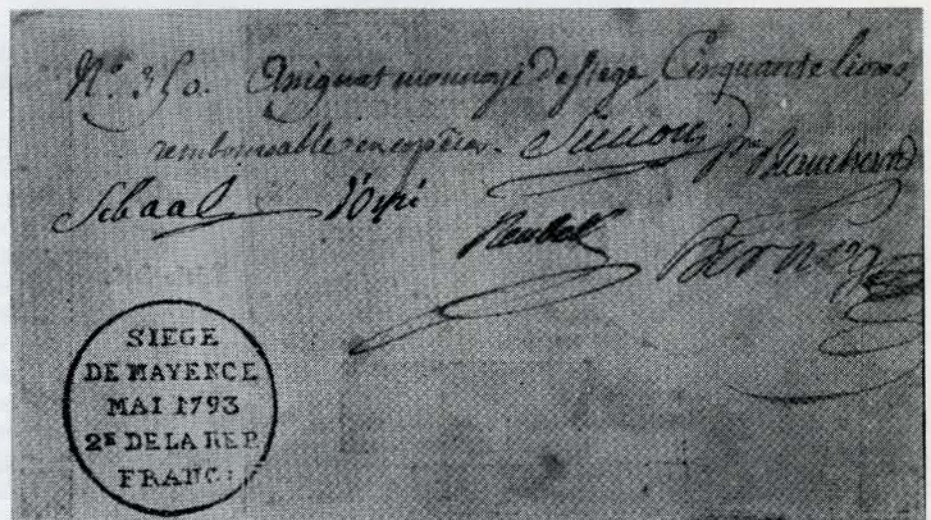 N.º 350. Assignat monnoye De siege, Cinquante livres,
remboursable en espèces. Simon
Schaal Reubell
SIEGE
DE MAYENCE
MAI 1793
2E DE LA REP.
FRANC: